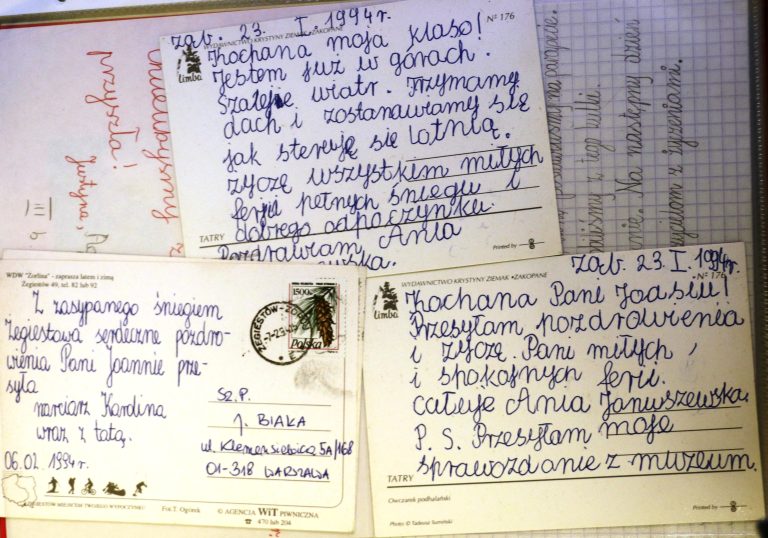 Ząb. 23. I. 1994r.
WYDAWNICTWO KRYSTYNY ZIEMAK • ZAKOPANE
Nº 176
limba
Kochana moja klaso!
Jestem już w górach.
Szaleje wiatr. Trzymamy
dach i zostanawiamy się
jak steruję się lotnią.
życzę wszystkim miłych
ferii pełnych śniegu i
dobrego odpoczynku.
Pozdrawiam, Ania
TATRY
Printed by
przyszła!
Justyna,
III b
Na następny dzień
WDW "Zorlina" - zaprasza latem i zimą
Żegiestów 49, tel. 82 lub 92
Z zasypanego śniegiem
Żegiestowa serdeczne pozdro-
wienia Pani Joannie prze-
syła
narciarz Karolina
wraz z tatą.
06.02. 1994r.
1500
Polska
ŻEGIESTÓW-ZDRÓJ
SZ.P.
J. BIAŁKA
ul. Klemensiewicza 5A/168
01-318 WARSZAWA
ŻEGIESTÓW MIEJSCEM TWOJEGO WYPOCZYNKU
Fot. T. Ogórek
© AGENCJA WiT PIWNICZNA
☎ 470 lub 204
Ząb. 23. I. 1994r.
WYDAWNICTWO KRYSTYNY ZIEMAK • ZAKOPANE
Nº 176
limba
Kochana Pani Joasiu!
Przesyłam pozdrowienia
i życzę Pani miłych,
i spokojnych ferii.
całuje Ania Januszewska.
P. S. Przesyłam moje
sprawozdanie z muzeum.
TATRY
Owczarek podhalański
Printed by
Photo © Tadeusz Sumiński